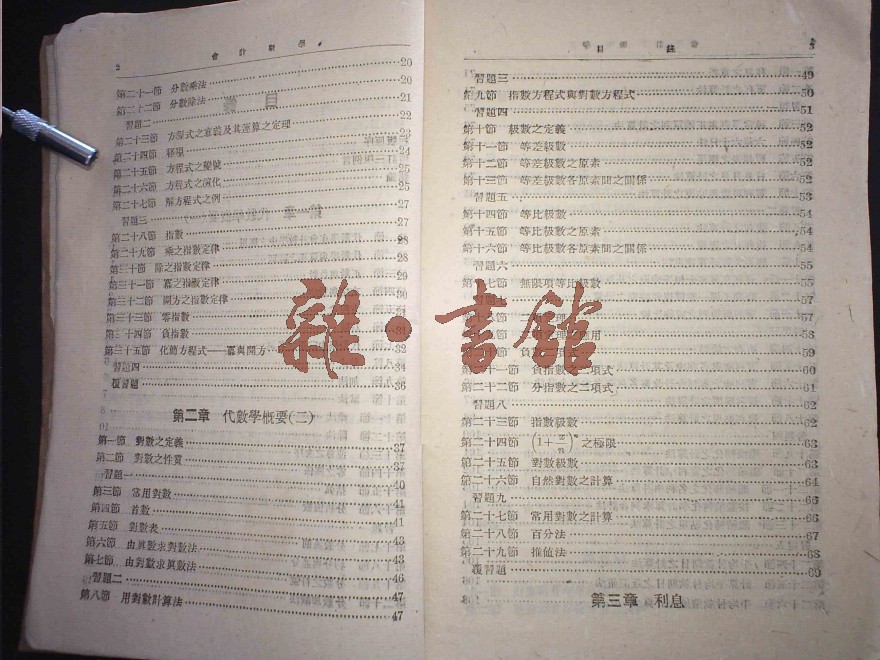 2 會計數學
第二十一節 分數乘法 20
第二十二節 分數除法 20
習題二 21
第二十三節 方程式之意義及其運算之定理 22
第二十四節 移項 23
第二十五節 方程式之變號
第二十六節 方程式之演化 25
第二十七節 解方程式之例 25
習題三 27
第二十八節 指數 27
第二十九節 乘之指數定律 28
第三十節 除之指數定律 28
第三十一節 冪之指數定律 29
第三十二節 開方之指數定律 30
第三十三節 零指數 31
第三十四節 負指數 31
第三十五節 化簡方程式——冪與開方 32
習題四 34
複習題 36
第二章 代數學概要(二)
第一節 對數之定義 37
第二節 對數之性質 37
習題一 40
第三節 常用對數 41
第四節 首數 41
第五節 對數表 43
第六節 由眞數求對數法 43
第七節 由對數求眞數法 46
習題二 47
第八節 用對數計算法 47
目錄 3
習題三 49
第九節 指數方程式與對數方程式 50
習題四 51
第十節 級數之定義 52
第十一節 等差級數 52
第十二節 等差級數之原素 52
第十三節 等差級數各原素間之關係 52
習題五 53
第十四節 等比級數 54
第十五節 等比級數之原素 54
第十六節 等比級數各原素間之關係 54
習題六 55
第十七節 無限項等比級數 55
習題七 57
第十八節 二項 57
第十九節 應用 58
負數之二項式 59
第二十一節 負指數之二項式 60
第二十二節 分指數之二項式 61
習題八 62
第二十三節 指數級數 62
第二十四節 (1+x/n)ⁿ之極限 63
第二十五節 對數級數 63
第二十六節 自然對數之計算 64
習題九 66
第二十七節 常用對數之計算 66
第二十八節 百分法 66
第二十九節 推値法 68
複習題 69
第三章 利息
雜·書館